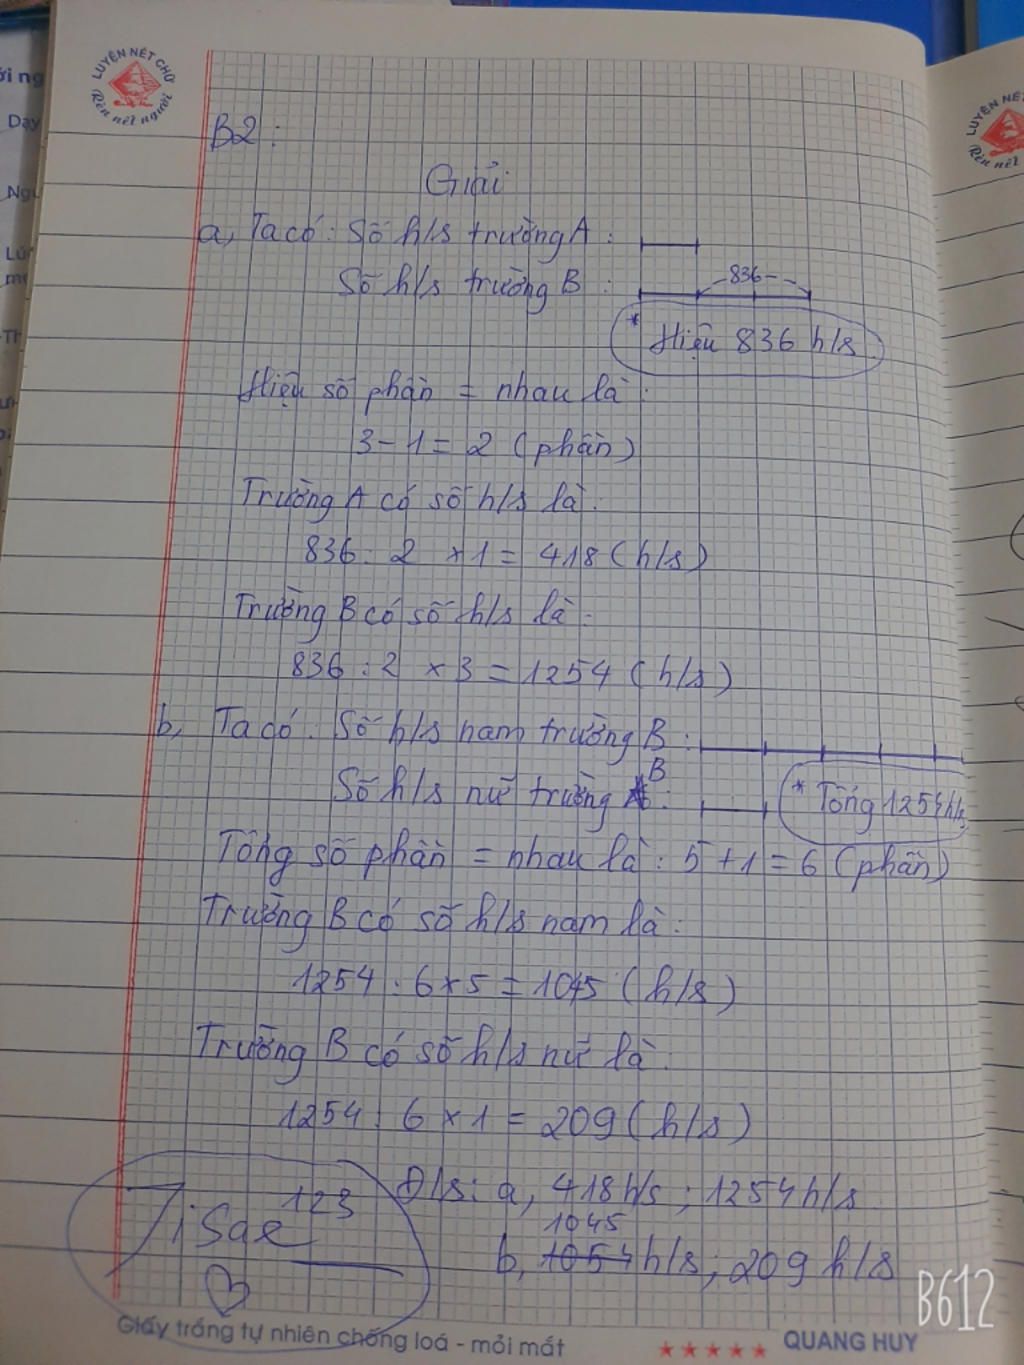 LUYỆN NẾT CHỮ
Rèn nết người
B2:
Giải
a, Ta có: Số h/s trường A:
Số h/s trường B:
836
* Hiệu 836 h/s
Hiệu số phần = nhau là:
3 - 1 = 2 (phần)
Trường A có số h/s là:
836 : 2 × 1 = 418 (h/s)
Trường B có số h/s là:
836 : 2 × 3 = 1254 (h/s)
b, Ta có: Số h/s nam trường B:
Số h/s nữ trường B:
* Tổng 1254 h/s
Tổng số phần = nhau là: 5 + 1 = 6 (phần)
Trường B có số h/s nam là:
1254 : 6 × 5 = 1045 (h/s)
Trường B có số h/s nữ là:
1254 : 6 × 1 = 209 (h/s)
Đ/s: a, 418 h/s ; 1254 h/s
1045
b, 1054 h/s ; 209 h/s
JiSae 123
B612
Giấy trắng tự nhiên chống loá - mỏi mắt
QUANG HUY
LUYỆN NẾT
Rèn nết
ới ng
Dạy